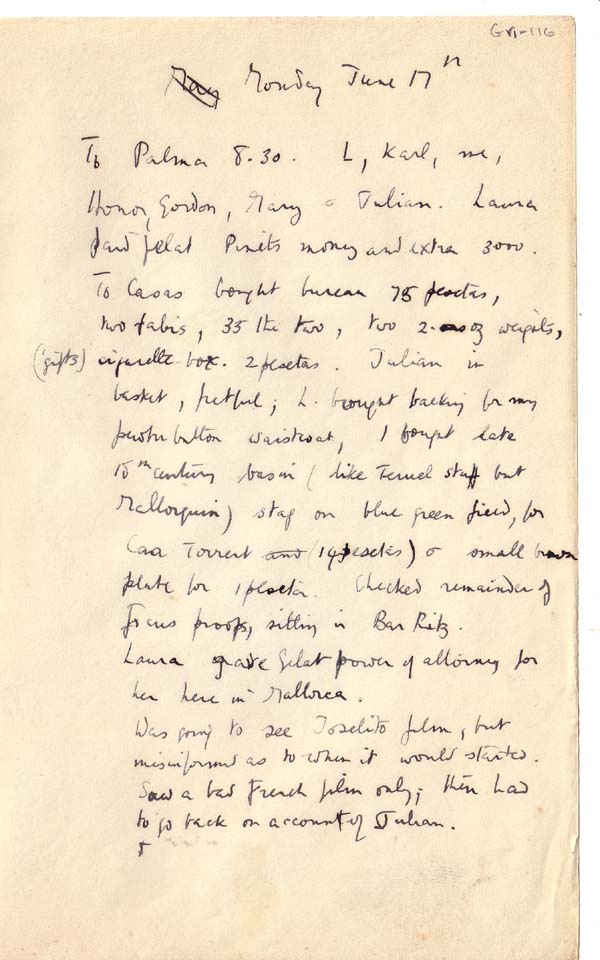 GVI-116
May Monday June 17th
To Palma 8.30. L, Karl, me,
Honor, Gordon, Mary & Julian. Laura
paid Gelat money and extra 3000.
To Casas bought bureau 75 pesetas,
two 35 the two, two 2- oz weights,
(gifts) cigarette-box. 2 pesetas. Julian in
basket, fretful; L. bought backing for my
pewter button waistcoat, I bought late
18th century basin (like Teruel stuff but
Mallorquin) stag on blue green field, for
Casa Torrent and (14 pesetas) & small brown
plate for 1 peseta. Checked remainder of
Focus proofs, sitting in Bar Ritz.
Laura gave Gelat power of attorney for
her here in Mallorca.
Was going to see Joselito film, but
misinformed as to when it would started.
Saw a bad French film only; then had
to go back on account of Julian.